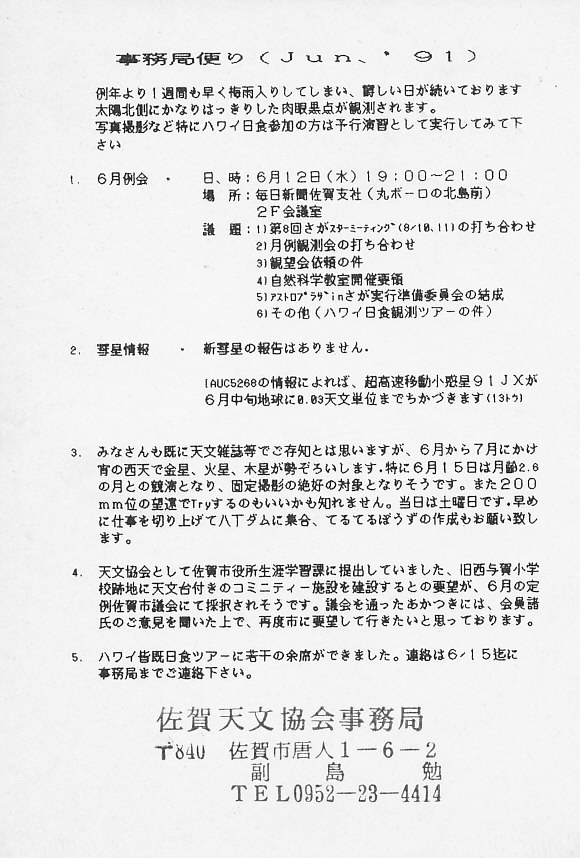 事務局便り（Ｊｕｎ、’９１）
例年より１週間も早く梅雨入りしてしまい、欝しい日が続いております
太陽北側にかなりはっきりした肉眼黒点が観測されます。
写真撮影など特にハワイ日食参加の方は予行演習として実行してみて下
さい
1. ６月例会 ・ 日、時：６月１２日（水）１９：００～２１：００
場　所：毎日新聞佐賀支社（丸ボーロの北島前）
２Ｆ会議室
議　題：1)第8回さがｽﾀｰﾐｰﾃｨﾝｸﾞ(8/10,11)の打ち合わせ
2)月例観測会の打ち合わせ
3)観望会依頼の件
4)自然科学教室開催要領
5)ｱｽﾄﾛﾌﾟﾗｻﾞinさが実行準備委員会の結成
6)その他（ハワイ日食観測ツアーの件）
2. 彗星情報 ・ 新彗星の報告はありません．
IAUC5268の情報によれば、超高速移動小惑星９１ＪＸが
６月中旬地球に0.03天文単位までちかづきます(13ﾄｳ)
3. みなさんも既に天文雑誌等でご存知とは思いますが、６月から７月にかけ
宵の西天で金星、火星、木星が勢ぞろいします．特に６月１５日は月齢2.6
の月との競演となり、固定撮影の絶好の対象となりそうです。また２００
ｍｍ位の望遠でTryするのもいいかも知れません。当日は土曜日です．早め
に仕事を切り上げて八丁ダムに集合、てるてるぼうずの作成もお願い致し
ます。
4. 天文協会として佐賀市役所生涯学習課に提出していました、旧西与賀小学
校跡地に天文台付きのコミニティー施設を建設するとの要望が、６月の定
例佐賀市議会にて採択されそうです。議会を通ったあかつきには、会員諸
氏のご意見を聞いた上で、再度市に要望して行きたいと思っております。
5. ハワイ皆既日食ツアーに若干の余席ができました。連絡は６／１５迄に
事務局までご連絡下さい。
佐賀天文協会事務局
〒840　佐賀市唐人１－６－２
副　島　勉
ＴＥＬ0952－23－4414